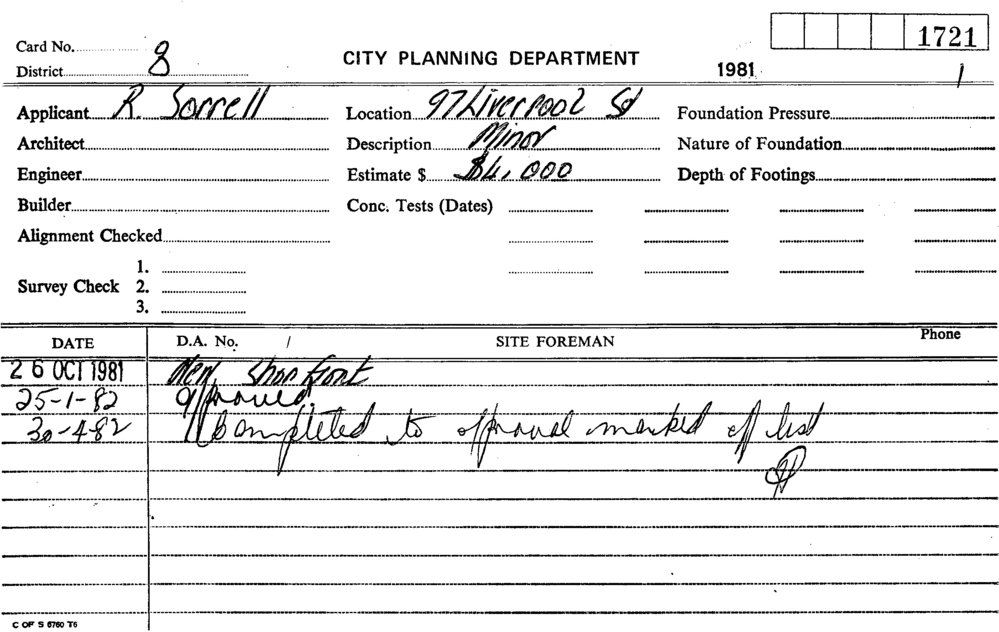 1721
Card No. 8
CITY PLANNING DEPARTMENT
District
1981 1
Applicant R. Sorrell Location 97 Liverpool St Foundation Pressure
Architect Description Minor Nature of Foundation
Engineer Estimate $ $4,000 Depth of Footings
Builder Conc. Tests (Dates)
Alignment Checked
1.
Survey Check 2.
3.
DATE D.A. No. / SITE FOREMAN Phone
26 OCT 1981 New Shop front
25-1-82 approved
30-4-82 Completed to approval marked off list
C OF S 6760 T6